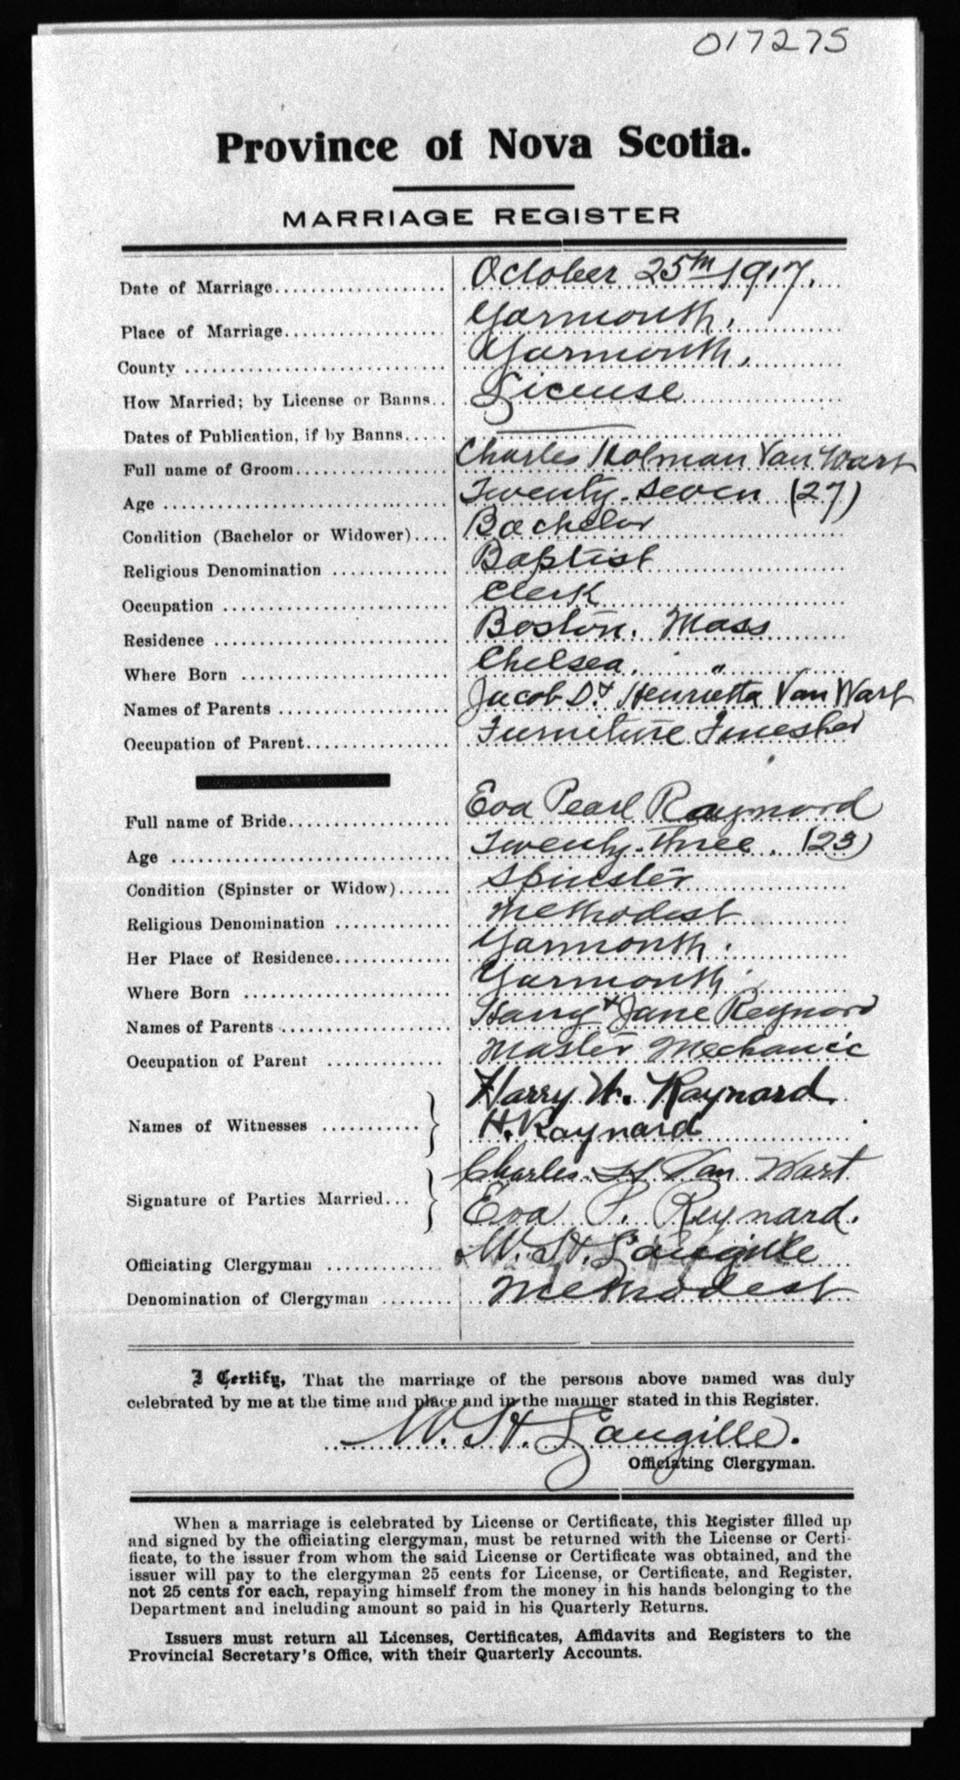 017275
Province of Nova Scotia.
MARRIAGE REGISTER
Date of Marriage.................... October 25th 1917.
Place of Marriage................... Yarmouth.
County ............................ Yarmouth.
How Married; by License or Banns.. License
Dates of Publication, if by Banns..... ———
Full name of Groom.................. Charles Holman Van Wart
Age ............................... Twenty-seven (27)
Condition (Bachelor or Widower).... Bachelor
Religious Denomination ............. Baptist
Occupation .......................... Clerk
Residence ........................... Boston. Mass
Where Born ........................ Chelsea. "
Names of Parents ................... Jacob D. & Henrietta Van Wart
Occupation of Parent................ Furniture Finesher
Full name of Bride.................. Eva Pearl Raynord
Age ................................. Twenty-three. (23)
Condition (Spinster or Widow)...... Spinster
Religious Denomination ............. Methodest
Her Place of Residence............. Yarmouth.
Where Born ........................ Yarmouth.
Names of Parents ................... Harry & Jane Reynord
Occupation of Parent .............. Master Mechanic
Names of Witnesses ........... } Harry W. Raynard.
H. Raynard
Signature of Parties Married... } Charles. H Van Wart
Eva P. Reynard.
Officiating Clergyman ............. W. H. Langille
Denomination of Clergyman ........ Methodest
I Certify, That the marriage of the persons above named was duly
celebrated by me at the time and place and in the manner stated in this Register.
W. H. Langille.
Officiating Clergyman.
When a marriage is celebrated by License or Certificate, this Register filled up
and signed by the officiating clergyman, must be returned with the License or Certi-
ficate, to the issuer from whom the said License or Certificate was obtained, and the
issuer will pay to the clergyman 25 cents for License, or Certificate, and Register,
not 25 cents for each, repaying himself from the money in his hands belonging to the
Department and including amount so paid in his Quarterly Returns.
Issuers must return all Licenses, Certificates, Affidavits and Registers to the
Provincial Secretary's Office, with their Quarterly Accounts.